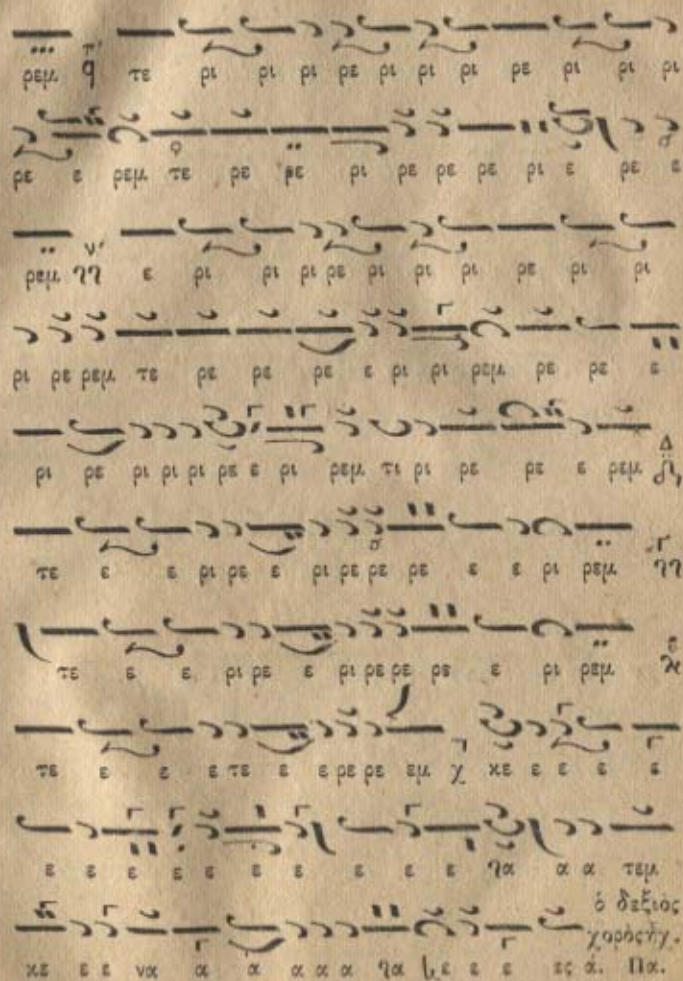 ρεμ τε ρι ρι ρι ρε ρι ρι ρι ρε ρι ρι ρι
ρε ε ρεμ τε ρε ρε ρι ρε ρε ρε ρι ε ρε ε
ρεμ ε ρι ρι ρι ρε ρι ρι ρι ρε ρι ρι
ρι ρε ρεμ τε ρε ρε ρε ε ρι ρι ρεμ ρε ρε ε
ρι ρε ρι ρι ρι ρε ε ρι ρεμ τι ρι ρε ρε ε ρεμ
τε ε ε ρι ρε ε ρι ρε ρε ρε ε ε ρι ρεμ
τε ε ε ρι ρε ε ρι ρε ρε ρε ε ρι ρεμ
τε ε ε ε τε ε ε ρε ρε εμ κε ε ε ε ε
ε ε ε ε ε ε ε ε ε ε να α α τεμ
ὁ δεξιὸς
χορὸς ἦχ.
κε ε ε να α α α α α να νε ε ε ες ἀ. Πα.